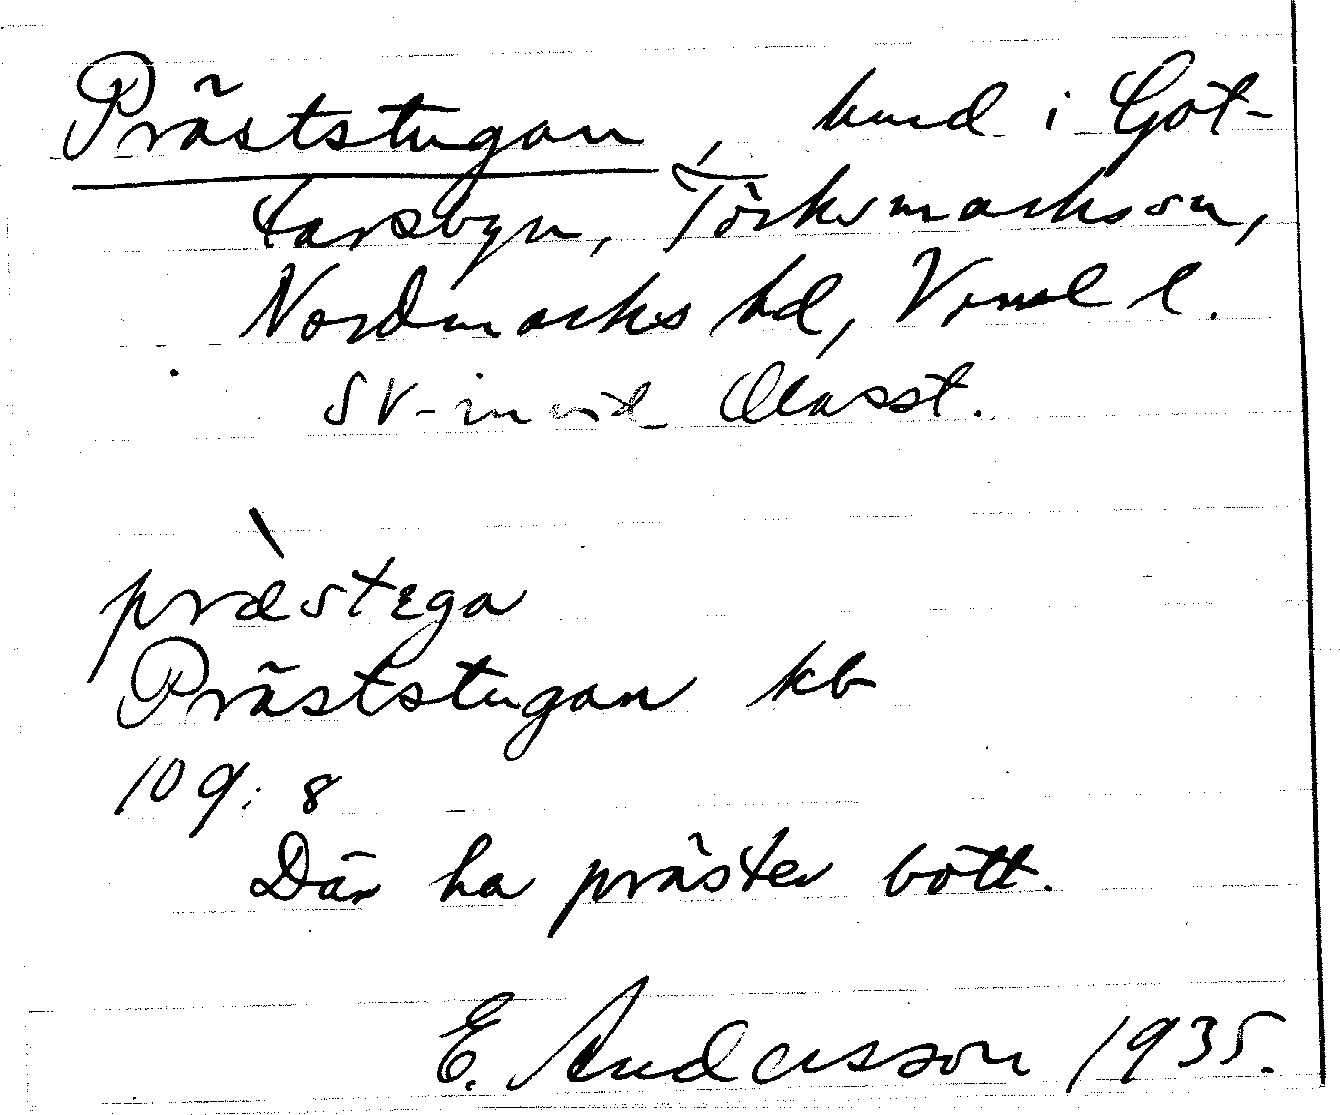 Präststugan, bund i Got-
tarsbyn, Törksmarks sn,
Nordmarks hd, Vrml l.
SV-in vid Olasst.
præ̀stega
Präststugan kb
109:8
Där ha präster bott.
E. Andersson 1935.